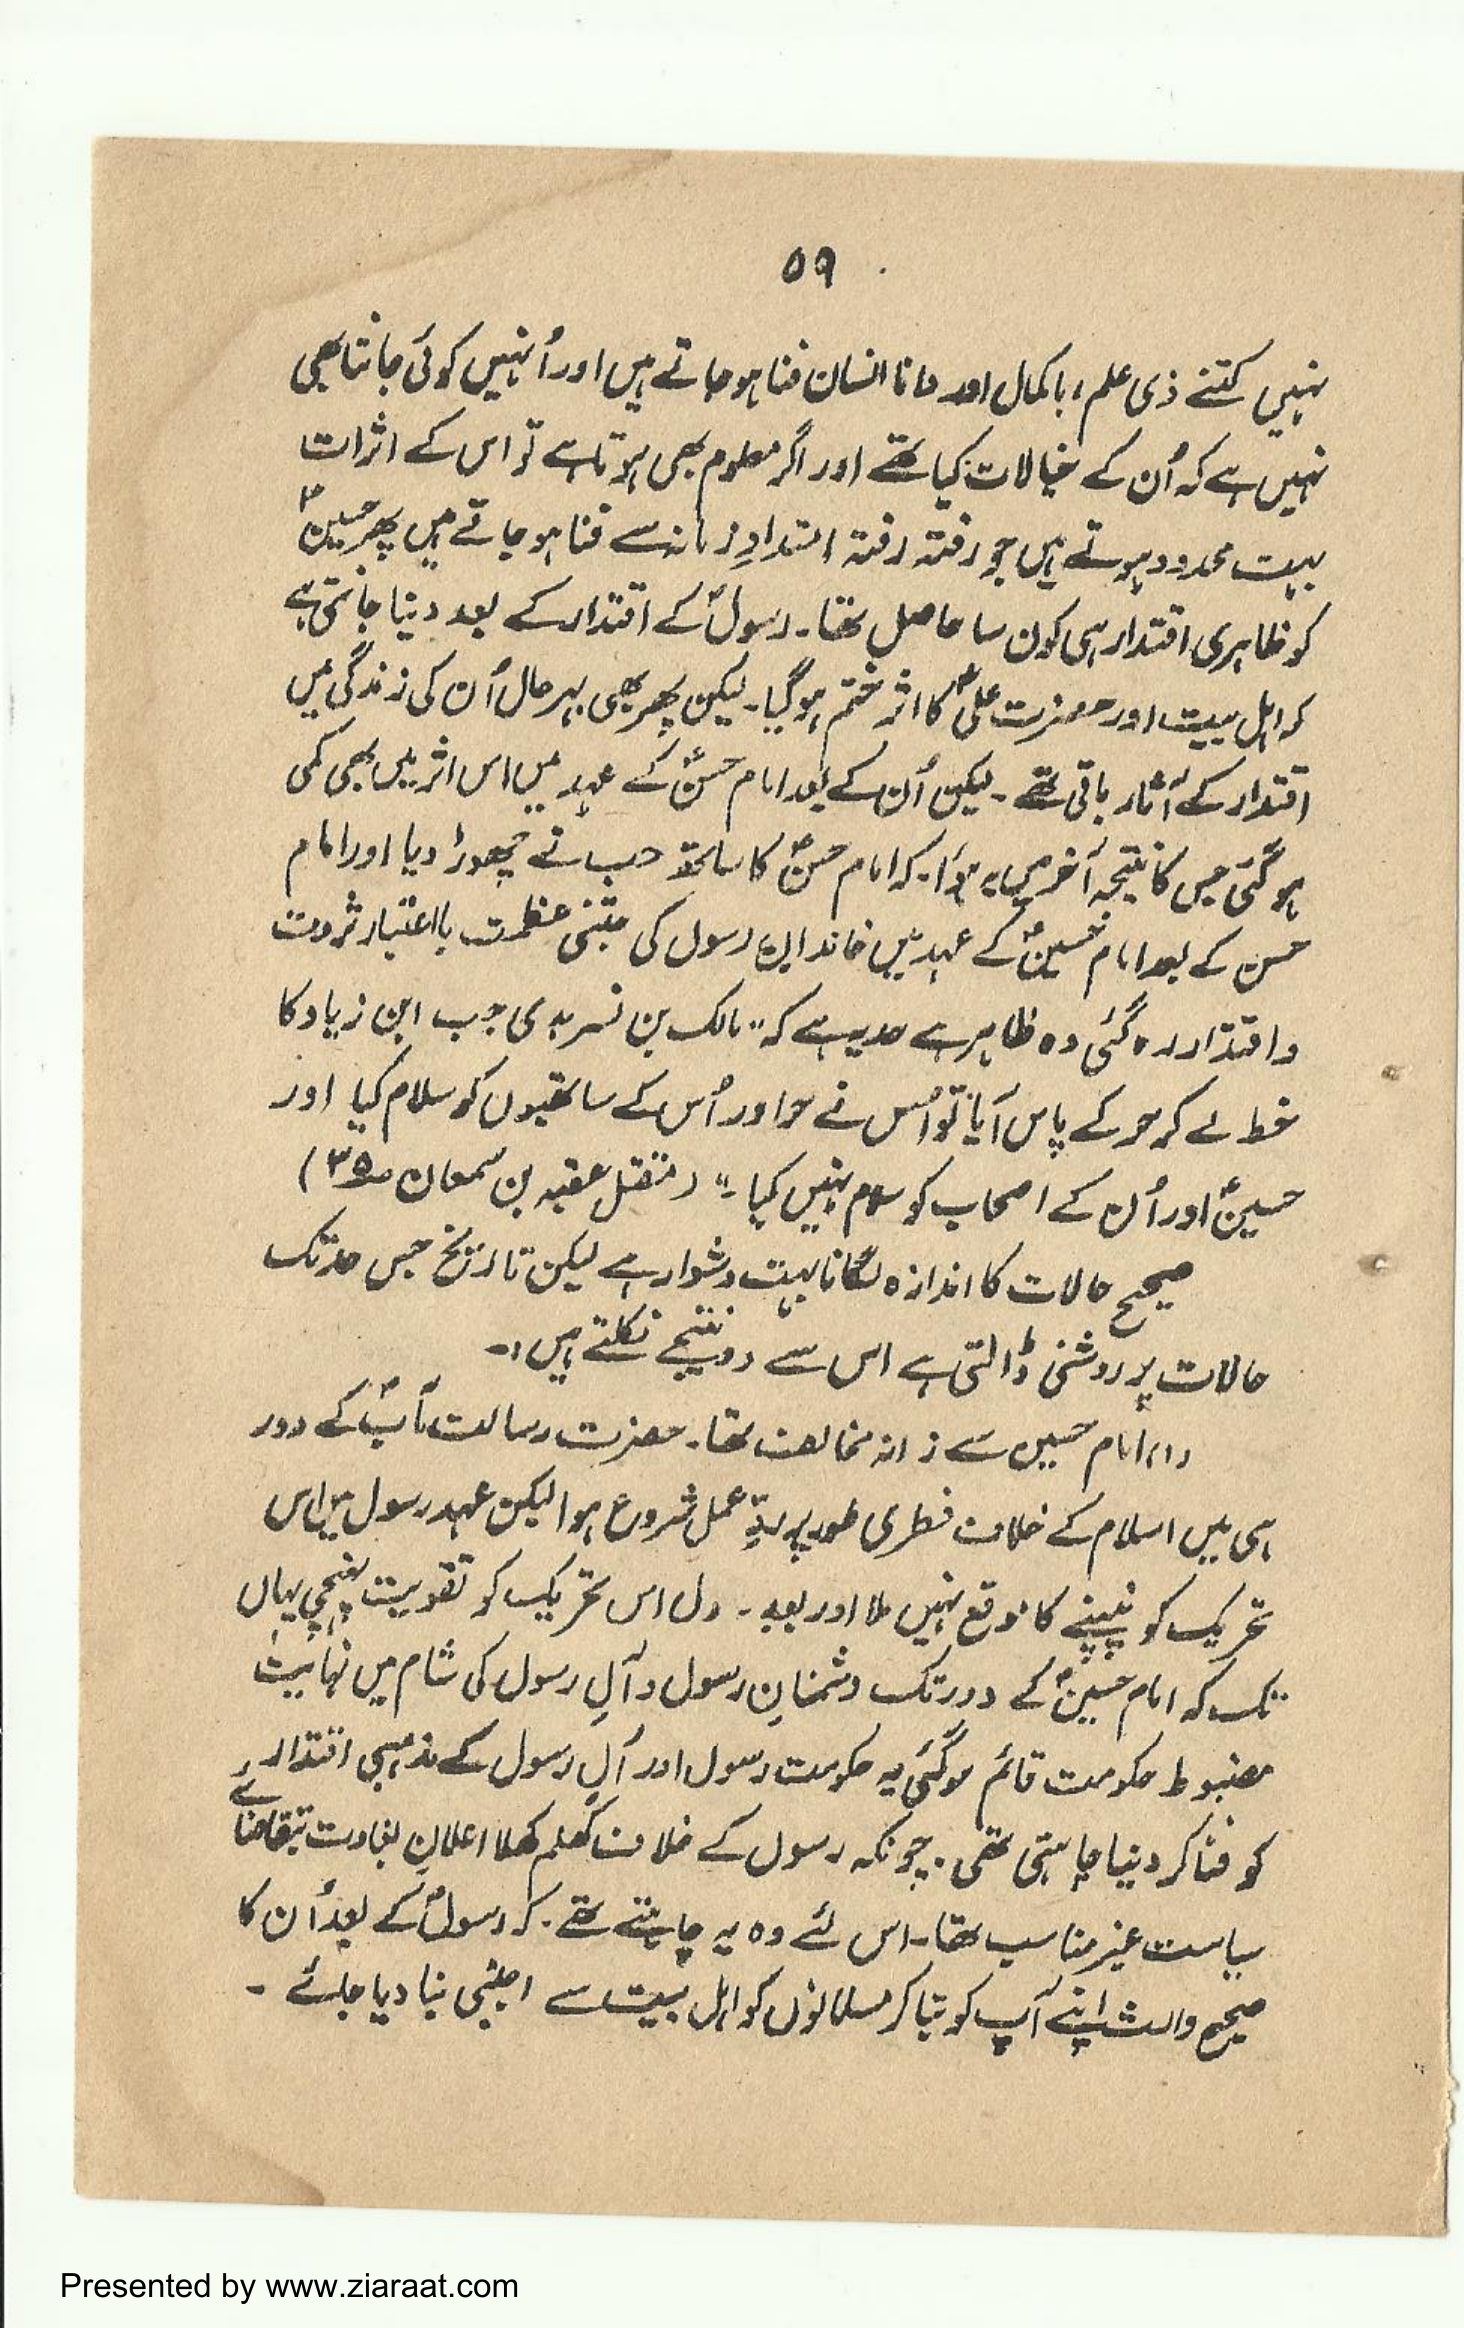 ۵۹
نہیں کتنے ذی علم، باکمال اور دانا انسان فنا ہو جاتے ہیں اور اُنہیں کوئی جانتا بھی
نہیں ہے کہ اُن کے خیالات کیا تھے اور اگر معلوم بھی ہوتا ہے تو اس کے اثرات
بہت محدود ہوتے ہیں جو رفتہ رفتہ امتدادِ زمانہ سے فنا ہو جاتے ہیں پھر حسینؑ
کو ظاہری اقتدار ہی کون سا حاصل تھا۔ رسولؐ کے اقتدار کے بعد دنیا جانتی ہے
کہ اہل بیت اور حضرت علیؑ کا اثر ختم ہو گیا۔ لیکن پھر بھی بہرحال اُن کی زندگی میں
اقتدار کے آثار باقی تھے۔ لیکن اُن کے بعد امام حسنؑ کے عہد میں اس اثر میں بھی کمی
ہو گئی جس کا نتیجہ آخر میں یہ ہوا۔ کہ امام حسنؑ کا ساتھ سب نے چھوڑ دیا اور امام
حسن کے بعد امام حسینؑ کے عہد میں خاندانِ رسول کی جتنی عظمت باعتبار ثروت
و اقتدار رہ گئی وہ ظاہر ہے حد یہ ہے کہ "مالک بن نسر بدی جب ابن زیاد کا
خط لے کر حر کے پاس آیا تو اُس نے حر اور اُس کے ساتھیوں کو سلام کیا اور
حسینؑ اور اُن کے اصحاب کو سلام نہیں کیا۔" (مقتل عقبہ بن سمعان ص۳۵)
صحیح حالات کا اندازہ لگانا بہت دشوار ہے لیکن تاریخ جس حد تک
حالات پر روشنی ڈالتی ہے اس سے دو نتیجے نکلتے ہیں:۔
(۱) امام حسین سے زمانہ مخالف تھا۔ حضرت رسالت مآبؐ کے دور
ہی میں اسلام کے خلاف فطری طور پر ردِّ عمل شروع ہوا لیکن عہد رسول میں اس
تحریک کو پنپنے کا موقع نہیں ملا اور بعد۔ رسول اس تحریک کو تقویت پہنچی یہاں
تک کہ امام حسینؑ کے دور تک دشمنانِ رسول و آلِ رسول کی شام میں نہایت
مضبوط حکومت قائم ہو گئی یہ حکومت رسول اور آلِ رسول کے مذہبی اقتدار
کو فنا کر دینا چاہتی تھی۔ چونکہ رسول کے خلاف کھلم کھلا اعلانِ بغاوت بتقاضائے
سیاست غیر مناسب تھا۔ اس لئے وہ یہ چاہتے تھے۔ کہ رسولؐ کے بعد اُن کا
صحیح وارث اپنے آپ کو بتا کر مسلمانوں کو اہل بیت سے اجنبی بنا دیا جائے۔
Presented by www.ziaraat.com